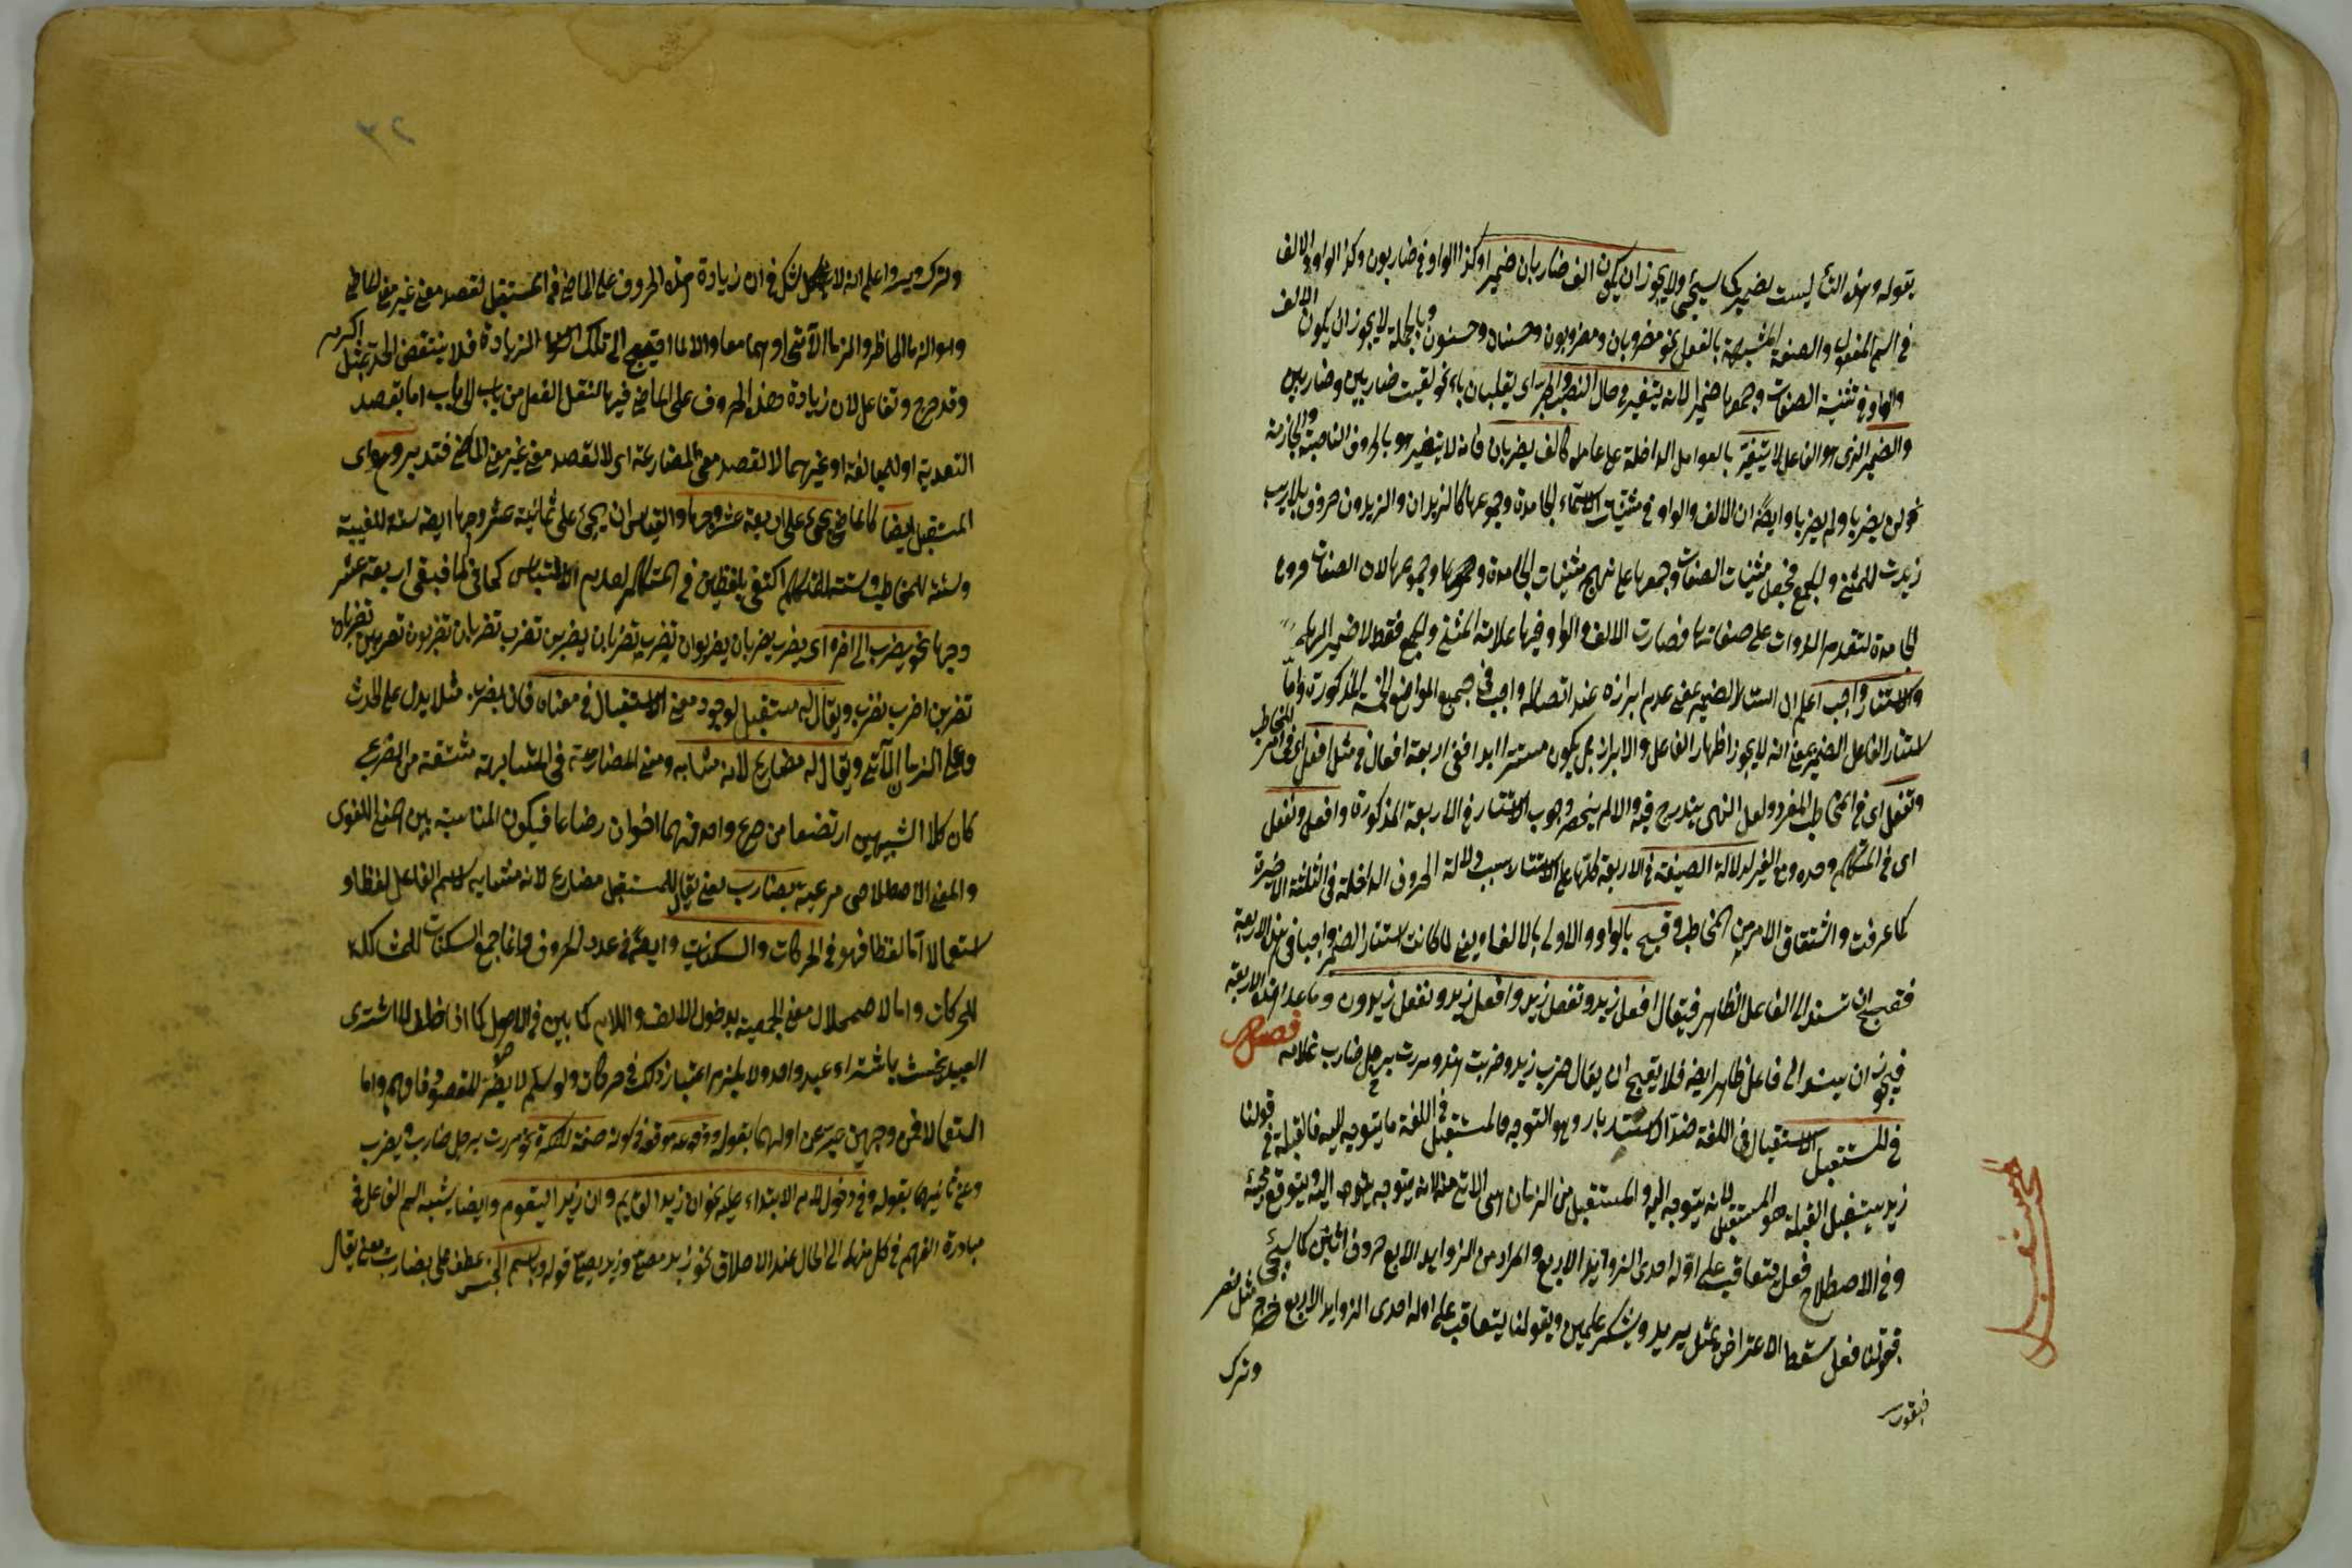 بقوله وهذه التأ ليست بضمير كما سيجئ ولا يجوز ان يكون الف ضاربان ضميرا وكذا الواو في ضاربون وكذا الواو والالف
في اسم المفعول والصفة المشبهة بالفعل نحو مضروبان ومضروبون وحسنان وحسنون وبالجملة لا يجوز ان يكون الالف
والواو في تثنية الصفات وجمعها ضميرا لانه يتغير في حال النصب والجر اى يقلبان ياء نحو لقيت ضاربين وضاربين
والضمير الذى هو الفاعل لا يتغير بالعوامل الداخلة على عامله كالف يضربان فانه لا يتغير هو بالحروف الناصبة والجازمة
نحو لن يضربا ولم يضربا وايضا ان الالف والواو في مثنيات الاسماء الجامدة وجموعها كالزيدان والزيدون حروف بلا ريب
زيدت للمثنى والجمع فجعل مثنيات الصفات وجمعها على نهج مثنيات الجامدة وجموعها لان الصفات فروع
الجامدة لتقدم الذوات على صفاتها فصارت الالف والواو فيها علامة المثنى والجمع فقط لا ضمير الفاعل
والاستتار واجب اعلم ان استتار الضمير بمعنى عدم ابرازه عند اتصاله واجب في جميع المواضع المذكورة واما
استتار الفاعل الضمير بمعنى انه لا يجوز اظهار الفاعل والابراز بل يكون مستترا ابدا ففى اربعة افعال في مثل افعل اى في امر المخاطب
وتفعل اى في المخاطب المفرد ولعل النهى يندرج فيه والا لم ينحصر وجوب الاستتار في الاربعة المذكورة وافعل ونفعل
اى في المتكلم وحده ومع الغير لدلالة الصيغة في الاربعة كلها على الاستتار بسبب دلالة الحروف الداخلة في الثلثة الاخيرة
كما عرفت واشتقاق الامر من المخاطب وقبح بالواو والاولى بالفاء يعنى لما كانت استتار الضمير واجبا في هذه الاربعة
فقبح ان تسند الى الفاعل الظاهر فيقال افعل زيد وتفعل زيد وافعل زيد ونفعل زيدون وما عدا هذه الاربعة
فيجوز ان يسند الى فاعل ظاهر ايضا فلا يقبح ان يقال ضرب زيد وضربت هند ومررت برجل ضارب غلامه فصل
في المستقبل الاستقبال في اللغة ضد الاستدبار وهو التوجه والمستقبل في اللغة ما يتوجه اليه فالقبلة في قولنا
زيد يستقبل القبلة هو المستقبل لانه يتوجه اليه والمستقبل من الزمان اسم الاتى منه لانه يتوجه اليه ويتوقع مجيئه
وفي الاصطلاح فعل يتعاقب على اوله احدى الزوايد الاربع والمراد من الزوايد الاربع حروف اتين كما سيجئ
فقولنا فعل سقط الاعتراض بمثل يزيد ويشكر علمين وبقولنا يتعاقب على اوله احدى الزوايد الاربع خرج مثل نصر
وترك
مستقبل
وترك ويسر واعلم انه لا شك في ان زيادة هذه الحروف على الماضى في المستقبل لقصد معنى غير معنى الماضى
وهو الزمان الحاضر والزمان الآتى او هما معا والالف الى تلك الزيادة فلا ينتقض الحد بمثل اكرم
وقد خرج وتفاعل لان زيادة هذه الحروف على الماضى فيها لنقل الفعل من باب الى باب اما بقصد
التعدية او للمبالغة او غيرهما لا لقصد معنى المضارعة اى لا لقصد معنى غير معنى الماضى فتدبر وهو اى
المستقبل ايضا كالماضى يجئ على اربعة عشر وجها والقياس ان يجئ على ثمانية عشر وجها ايضا ستة للغيبة
وستة للمخاطب وستة للمتكلم اكتفى بلفظين في المتكلم لعدم الالتباس كما في الماضى فبقى اربعة عشر
وجها نحو يضرب الى اخره اى يضرب يضربان يضربون تضرب تضربان يضربن تضرب تضربان تضربون تضربين تضربان
تضربن اضرب نضرب ويقال له مستقبل لوجود معنى الاستقبال في معناه فان يضرب مثلا يدل على الحدث
وعلى الزمان الآتى ويقال له مضارع لانه مشابه ومعنى المضارعة في المشابهة مشتقة من الضرع
كان كلا الشبيهين ارتضعا من ضرع واحد فهما اخوان رضاعا فيكون المناسبة بين المعنى اللغوى
والمعنى الاصطلاحى مرعية بضارب يعنى يقال للمستقبل مضارع لانه مشابه لاسم الفاعل لفظا و
استعمالا اما لفظا فهو في الحركات والسكنات وايضا في عدد الحروف وانما جمع السكنات للمشاكلة
للحركات واما لاضمحلال معنى الجمعية بدخول الالف واللام كما بين في الاصول كما اذا حلف لا اشترى
العبيد يحنث باشتراء عبد واحد ولا يلزم اعتبار ذلك في حركات ولو سلم لا يضر المقصود فافهم واما
استعمالا فمن وجهين عبر عن اولهما بقوله ووقوعه موقعه في كونه صفة للنكرة نحو مررت برجل ضارب ويضرب
وعن ثانيهما بقوله وفي دخول لام الابتداء عليه نحو ان زيدا لقايم وان زيدا ليقوم وايضا يشبه اسم الفاعل في
مبادرة الفهم في كل منهما الى الحال عند الاطلاق نحو زيد مصلح وزيد يصلح قوله وباسم الجنس عطف على بضارب يعنى يقال